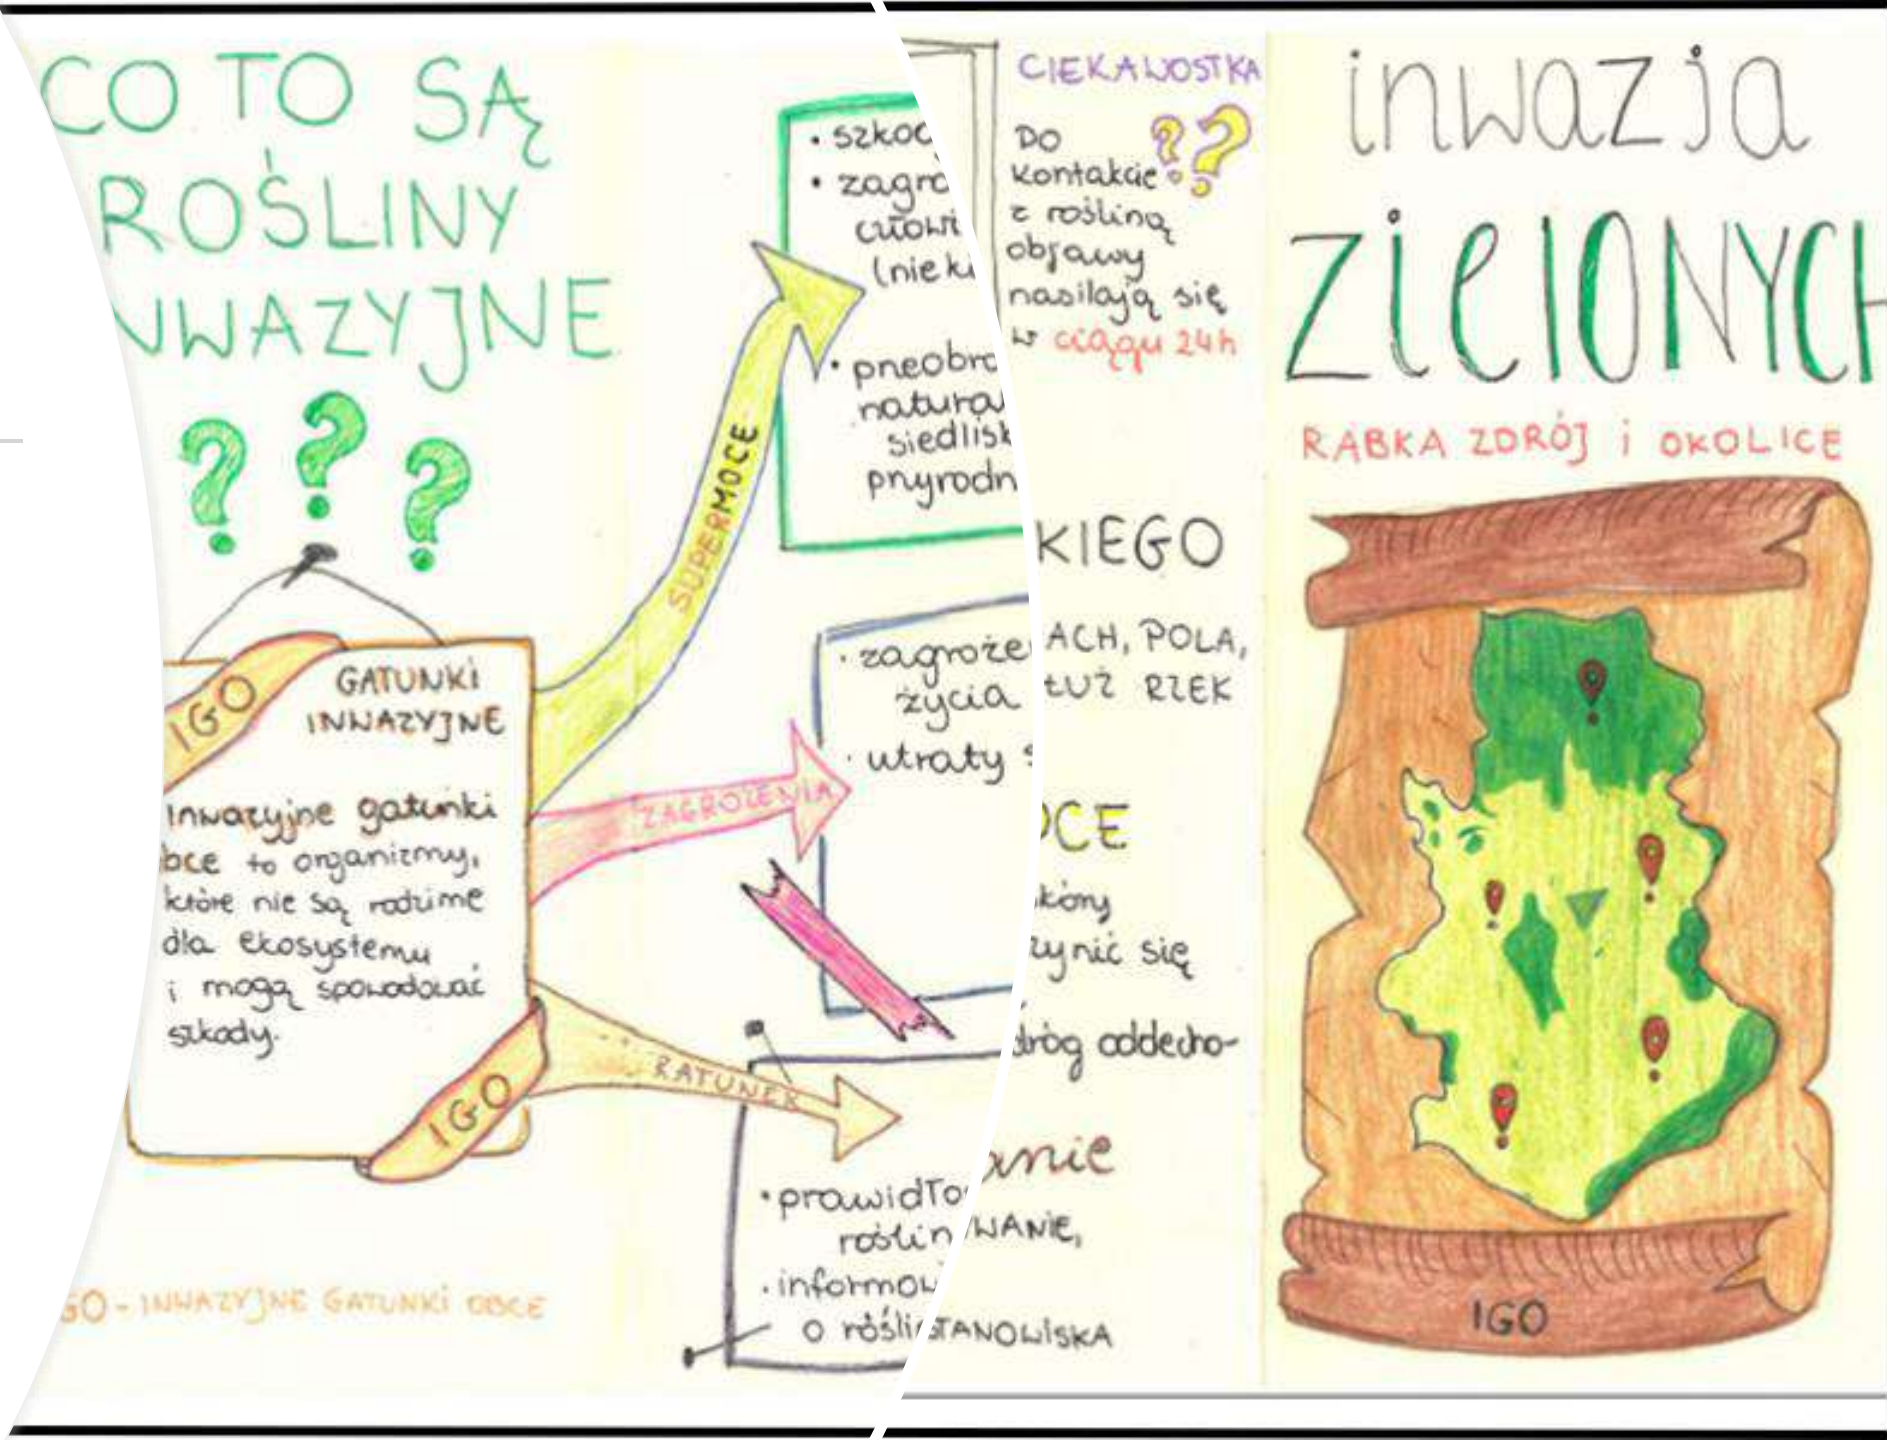 CO TO SĄ
ROŚLINY
NWAZYJNE
???
IGO
GATUNKI
INWAZYJNE
Inwazyjne gatunki
bce to organizmy,
które nie są rodzime
dla ekosystemu
i mogą spowodować
szkody.
IGO
GO - INWAZYJNE GATUNKI OBCE
SUPERMOCE
ZAGROŻENIA
RATUNEK
• szkod
• zagro
człowi
(nieki
• przeobra
natural
siedlisk
przyrodn
• zagroże
życia
• utraty
• prawidło
roślin
• informow
o rośli
CIEKAWOSTKA
??
DO
kontakcie
z rośliną
objawy
nasilają się
w ciągu 24h
KIEGO
ACH, POLA,
ŁUŻ RZEK
OCE
skóry
zynić się
dróg oddecho-
anie
WANIE,
STANOWISKA
inwazja
ZIELONYCH
RABKA ZDRÓJ i OKOLICE
IGO